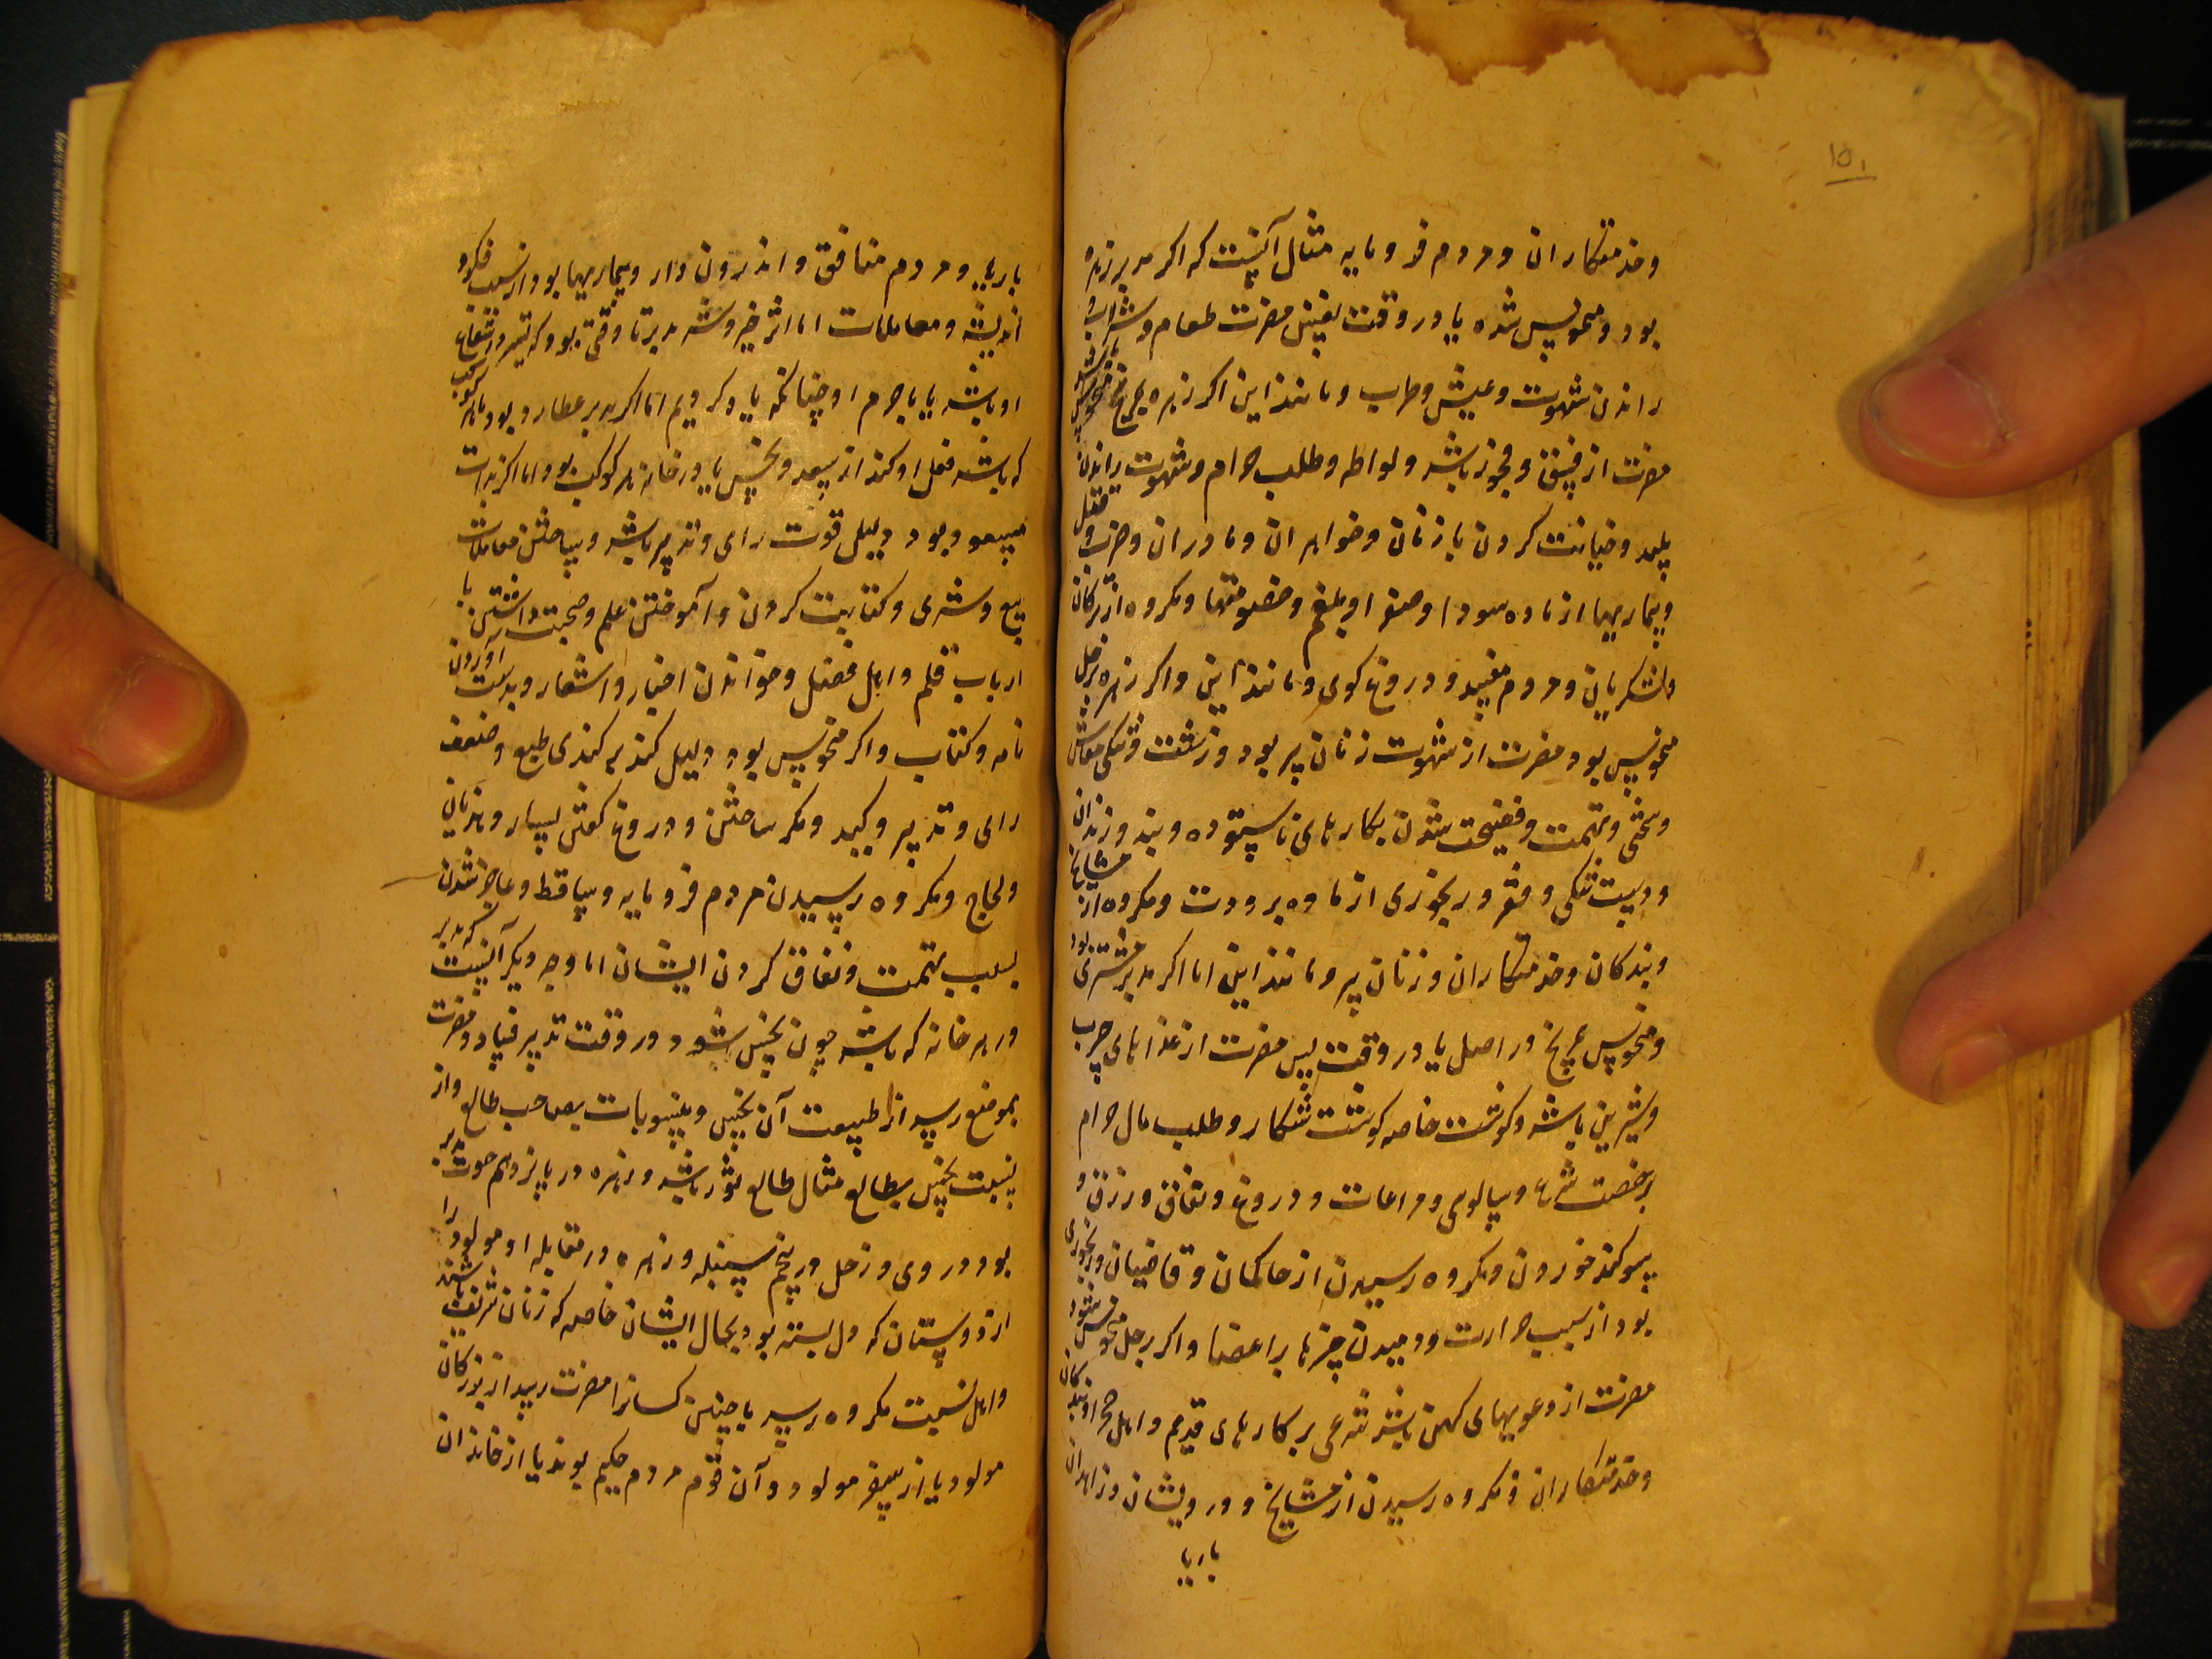 ۱۵۱
و خدمتکاران و مردم فرومایه مثال آنیست که اکر مدبر زهره
بود و منحوس شده یا در وقت بنفس مضرت طعام و شراب و
راندن شهوت و عیش و طرب و مانند این اکر زهره بمریخ منحوس باشد
مضرت از فسق و فجوز باشد و لواطه و طلب حرام و شهوت راندن
پلید و خیانت کردن با زنان و خواهران و مادران و ضرب و قتل
و بیماریها از ماده سودا و صفرا و بلغم و خصومتها و مکروه از ترکان
و لشکریان و مردم مفسد و دروغ کوی و مانند این و اکر زهره بزحل
منحوس بود مضرت از شهوت زنان پیر بود و زشت و تنکی معاش
و سختی و تهمت و فضیحت شدن بکارهای ناستوده و بند و زندان
و دست تنکی و فقر و رنجوری از ماده برودت و مکروه از مشایخ
و بندکان و خدمتکاران و زنان پیر و مانند این اما اکر مدبر مشتری بود
و منحوس بمریخ در اصل یا در وقت پس مضرت از غذاهای چرب
و شیرین باشد و کوشت خاصه کوشت شکار و طلب مال حرام
برخصت شرع و سالوس و مراعات و دروغ و نفاق و رزق و
سوکند خوردن و مکروه رسیدن از حاکمان و قاضیان و رنجوری
بود از سبب حرارت و دمیدن چیزها بر اعضا و اکر بزحل منحوس شود
مضرت از دعویهای کهن باشد شرعی بر کارهای قدیم و اهل صحرا و بندکان
و خدمتکاران و مکروه رسیدن از مشایخ و درویشان و زاهدان
باریا
باریا و مردم منافق و اندرون دار و بیماریها بود از سبب فکرو
اندیشه و معاملات اما اثر خیر و شر مدبر تا وقتی بود که تسیر در شعاع
او باشد یا با جرم او چنانکه یاد کردیم اما اکر مدبر عطارد بود با هر کوکب
که باشد فعل او کند از سعد و نحس یا در خانه هر کوکب بود اما اکر بذات
مسعود بود دلیل قوت رای و تدبیر باشد و ساختن معاملات
بیع و شری و کتابت کردن و آموختن علم و صحبت داشتن با
ارباب قلم و اهل فضل و خواندن اخبار و اشعار و بدست آوردن
نامه و کتاب و اکر منحوس بود دلیل کند بر کندی طبع و ضعف
رای و تدبیر و کید و مکر ساختن و دروغ کفتن بسیار و هذیان
و لجاج و مکروه رسیدن مردم فرومایه و ساقط و عاجز شدن
بسبب تهمت و نفاق کردن ایشان اما وجه دیکر آنیست که مدبر
در هر خانه که باشد چون نحس شود در وقت تدبیر فساد و مضرت
بموضع رسد از طبیعت آن نحس و منسوبات بصاحب طالع و از
نسبت نحس بطالع مثال طالع ثور باشد و زهره در یازدهم حوت مدبر
بود و روی و زحل در پنجم سنبله و زهره در مقابله او مولود را
از دوستان که دل بسته بود بحال ایشان خاصه که زنان شریف باشند
و اهل نسبت مکروه رسد با چنین کسانرا مضرت رسد از بزرکان
مولود یا از سفر مولود و آن قوم مردم حکیم بوند یا از خاندان